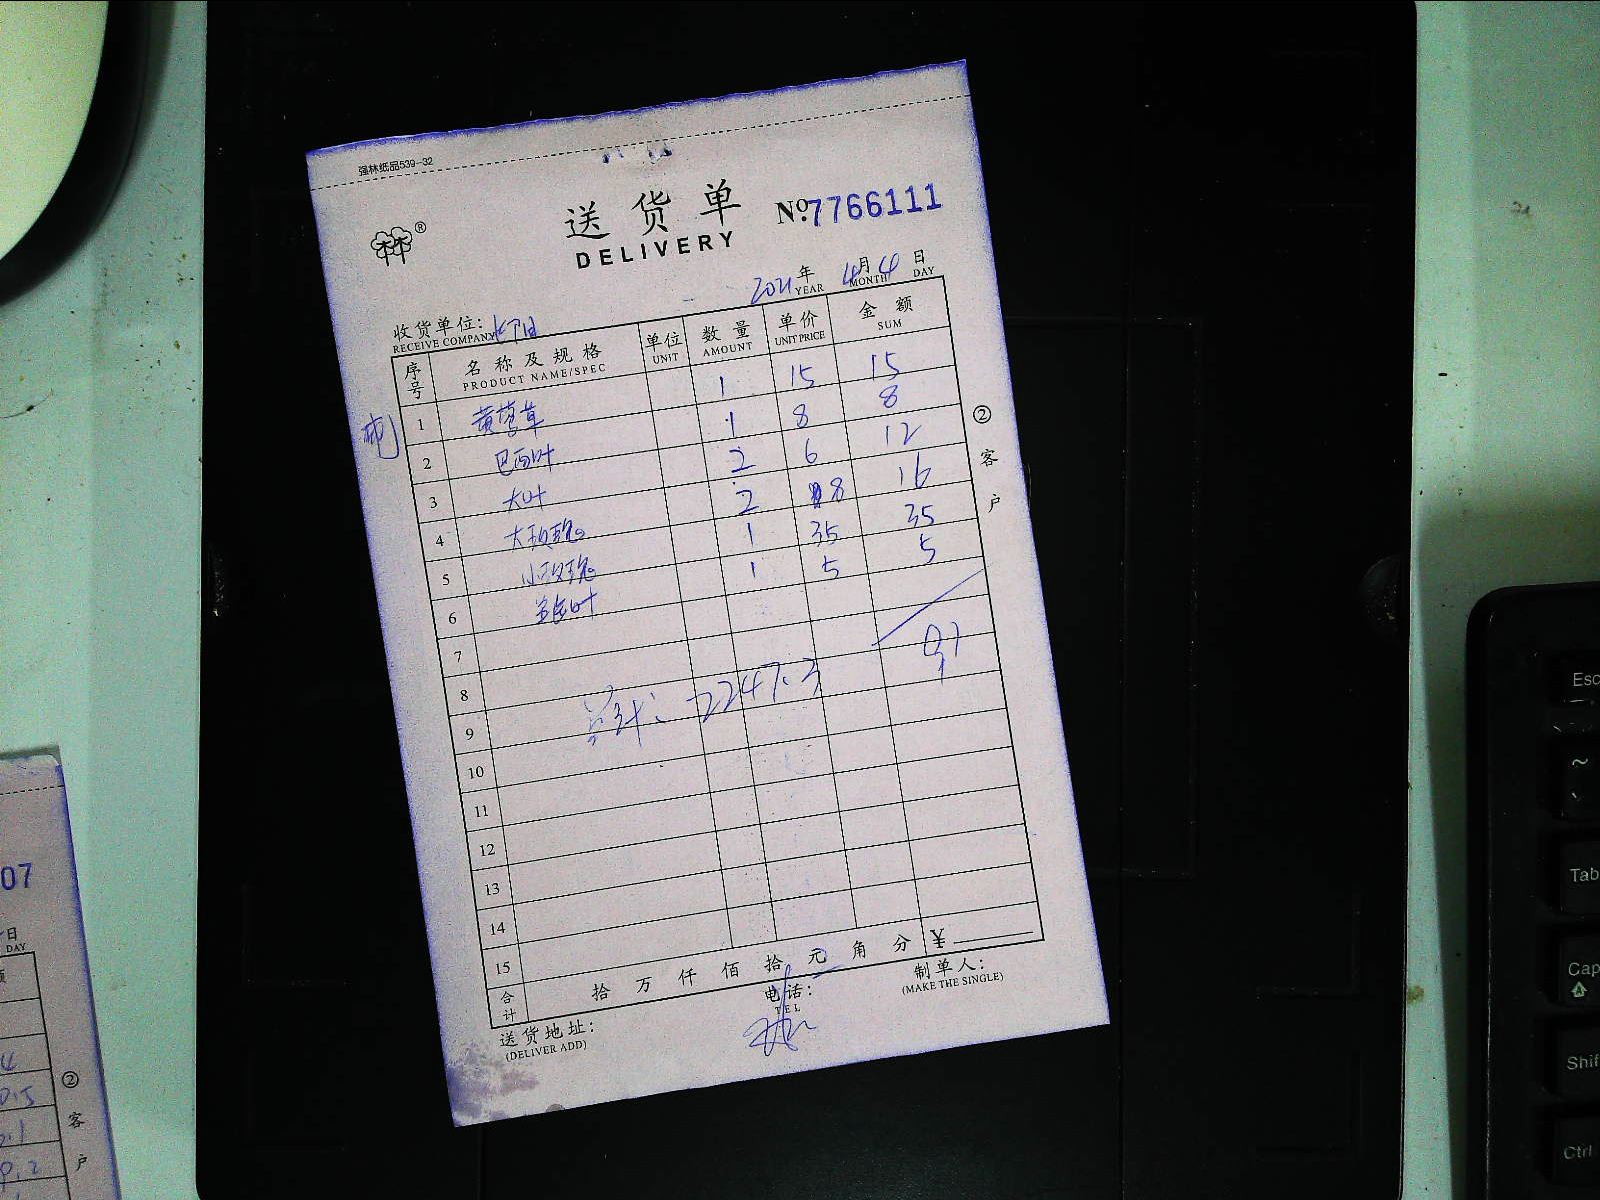 强林纸品539-32
送货单 №7766111
DELIVERY
2021年 4月 4日
YEAR MONTH DAY
收货单位:
RECEIVE COMPANY
序号 名称及规格 单位 数量 单价 金额
PRODUCT NAME/SPEC UNIT AMOUNT UNIT PRICE SUM
1 黄莺草 1 15 15
2 巴西叶 1 8 8
3 大叶 2 6 12
4 大玫瑰 2 8 16
5 小玫瑰 1 35 35
6 叶 1 5 5
7
8 91
9 2247.3
10
11
12
13
14
15
合计 拾 万 仟 佰 拾 元 角 分 ¥
送货地址: 电话: 制单人:
(DELIVER ADD) TEL (MAKE THE SINGLE)
②客户
07
日
DAY
②客户
Esc
~
Tab
Cap
Shif
Ctrl